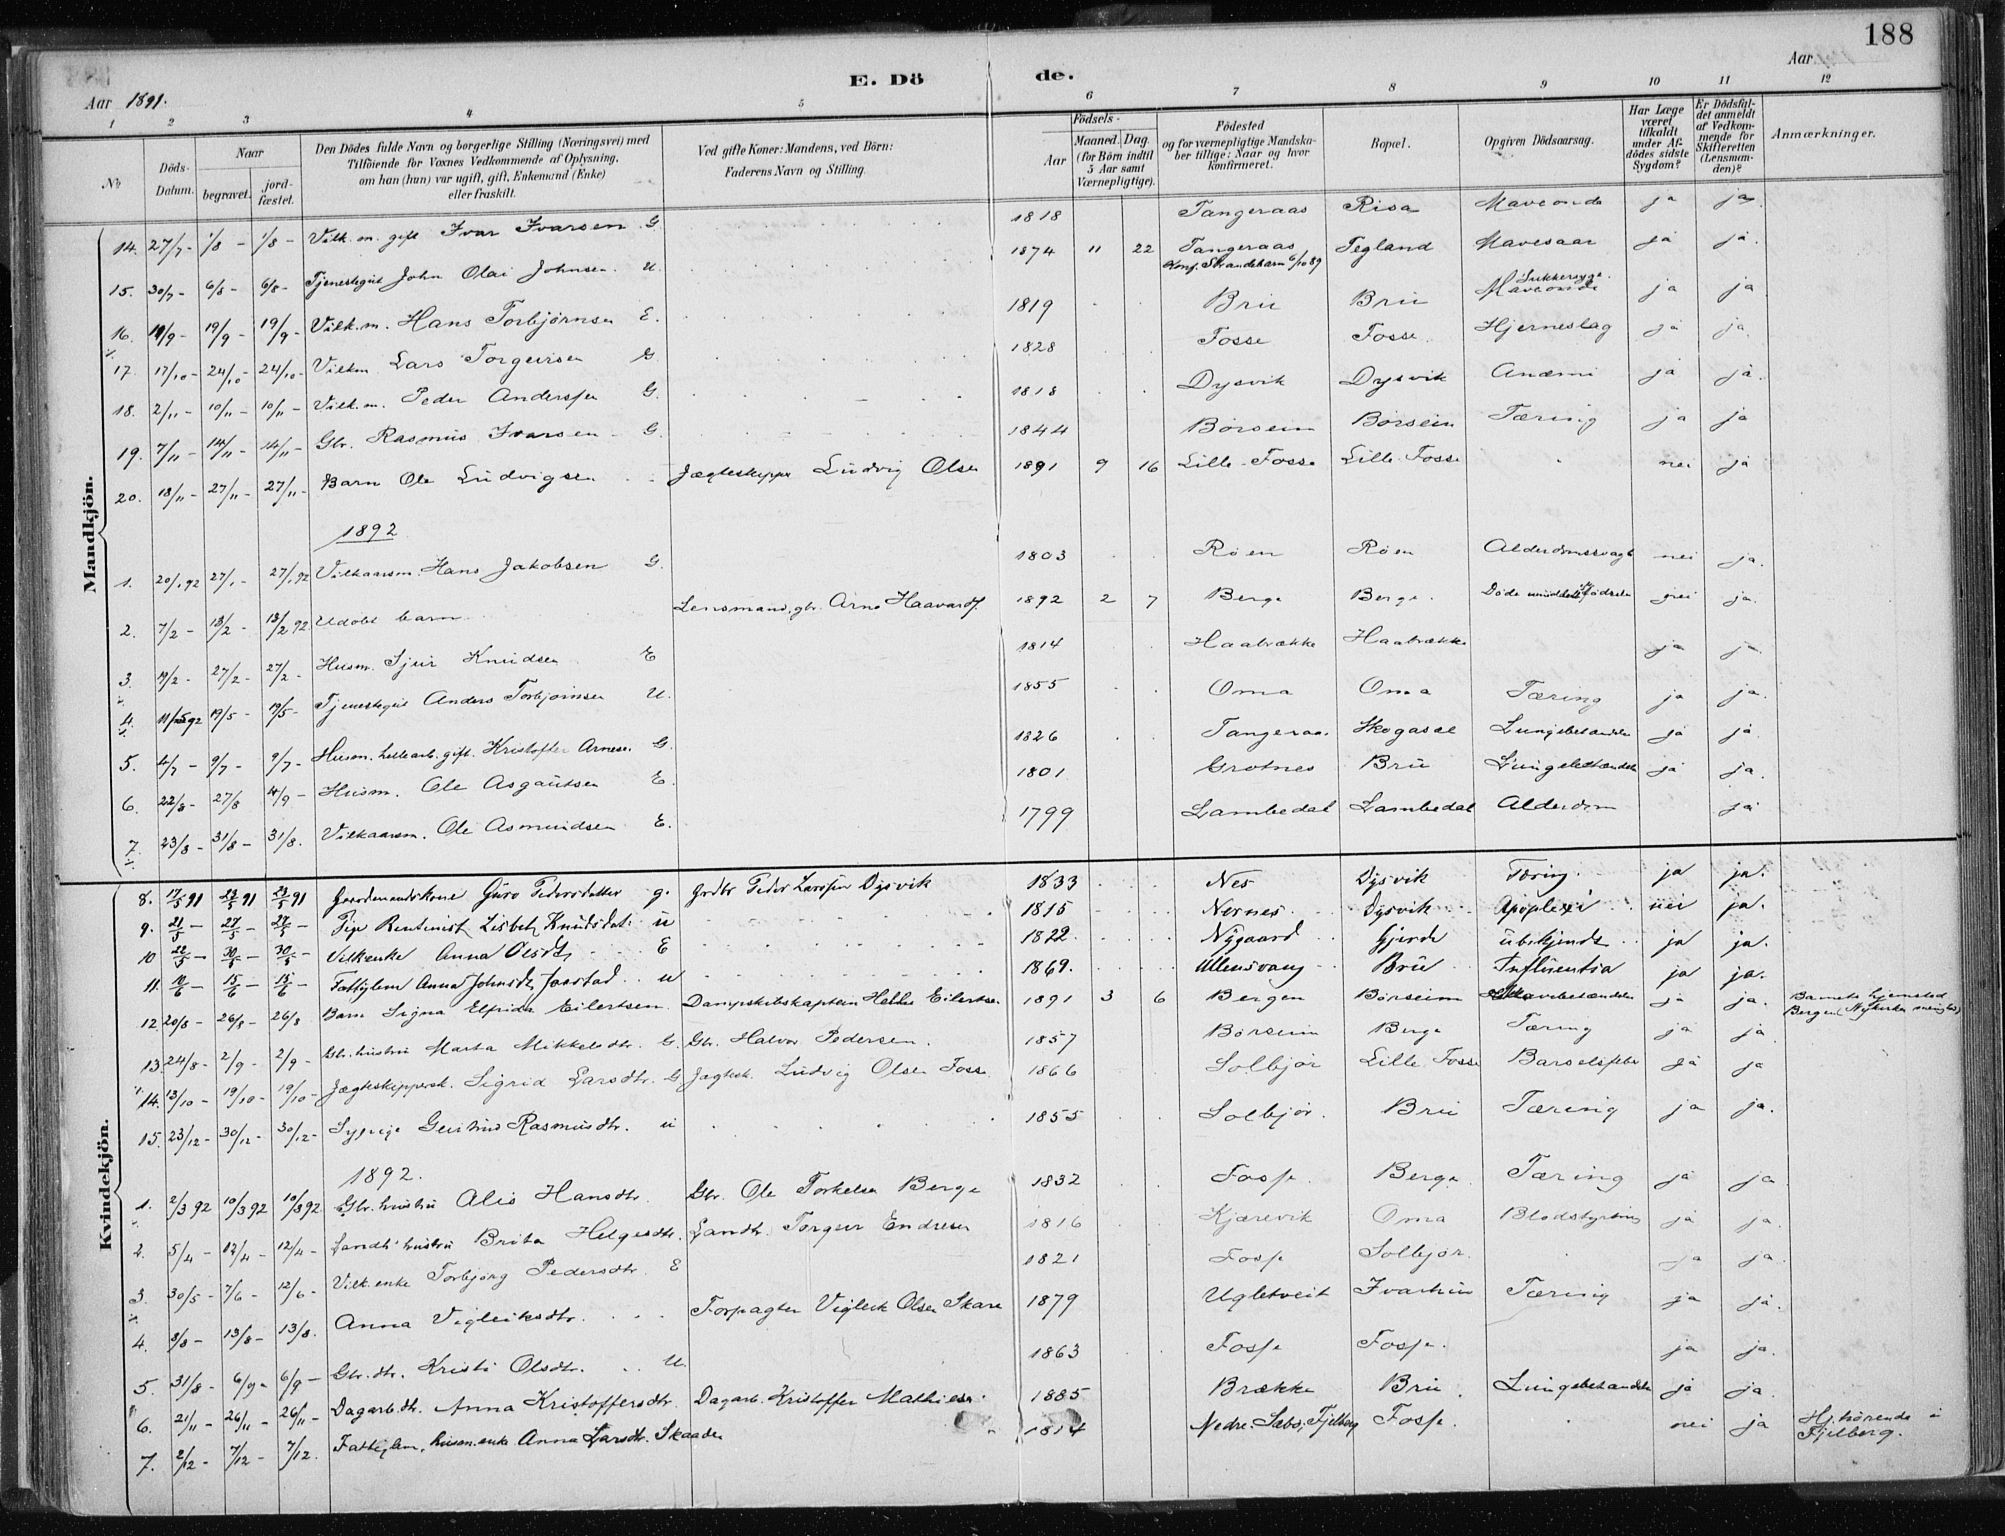 188
E. Dö de.
Aar 1891. Aar
1 2 3 4 5 6 7 8 9 10 11 12
No. Döds-Datum. Naar begravet. jord-fæstet. Den Dödes fulde Navn og borgerlige Stilling (Næringsvei) med Tilföiende for Voxnes Vedkommende af Oplysning, om han (hun) var ugift, gift, Enkemand (Enke) eller fraskilt. Ved gifte Koner: Mandens, ved Börn: Faderens Navn og Stilling. Födsels- Aar Maaned. Dag. (for Börn indtil 5 Aar samt Værnepligtige). Födested og for værnepligtige Mandskaber tillige: Naar og hvor konfirmeret. Bopæl. Opgiven Dödsaarsag. Har Læge været tilkaldt under Afdödes sidste Sygdom? Er Dödsfaldet anmeldt af Vedkommende for Skifteretten (Lensmanden)? Anmærkninger.
Mandkjön.
14. 27/7 - 1/8 - 1/8 - Vilk.m. gift Ivar Ivarsen G 1818 Tangeraas Risa Maveonde ja ja
15. 30/7 - 6/8 - 6/8 - Tjenestegut John Olai Johnsen U. 1874 11 22 Tangeraas, Konf. Strandebarm 6/10 89 Tegland Mavesaar ja ja.
16. 14/9 - 19/9 - 19/9 - Vilk.m. Hans Torbjörnsen E. 1819 Brü Brü Sukkersyge. Maveonde ja ja
17. 17/10 - 24/10 - 24/10 - Vilkm. Lars Torgeirsen G 1828 Fosse Fosse. Hjerneslag ja ja
18. 2/11 - 10/11 - 10/11 - Vilk.m. Peder Andersen G. 1818 Dysvik Dysvik Anæmi ja ja.
19. 7/11 - 14/11 - 14/11 - Gbr. Rasmus Ivarsen - G. 1844 Börseim Börseim Tæring ja ja
20. 18/11 - 27/11 - 27/11 - Barn Ole Ludvigsen Jægteskipper Ludvig Olsen 1891 9 16 Lille-Fosse Lille Fosse nei ja
1892
1. 20/1 92 27/1 - 27/1 92 Vilkaarsm. Hans Jakobsen G. 1803 Röen Röen Alderdomssvagh nei ja.
2. 7/2 - 13/2 - 13/2 92 Udöbt barn Lensmand, gbr. Arne Haavards. 1892 2 7 Berge Berge. Döde umiddelb. Födselen nei ja.
3. 19/2 - 27/2 - 27/2 - Husm. Sjur Knudsen E 1814 Haabrække Haabrække ja ja
4. 11/5 92 19/5 - 19/5 - Tjenestegut Anders Torbjörnsen U. 1855 Oma Oma Tæring ja ja.
5. 4/7 - 9/7 - 9/7 - Husm. gift. Kristoffer Arnesen G. 1826 Tangeraas Skogasæl Lungebetændelse ja ja.
6. 22/8 - 27/8 4/9 - Husm. Ole Asgautsen E. 1801 Grotnes Brü Lungebetændelse ja ja.
7. 23/8 - 31/8 - 31/8. Vilkaarsm. Ole Asmundsen E. 1799 Lambedal Lambedal Alderdom ja
Kvindekjön.
8. 17/5 91 23/5 91 23/5 91 Gaardmandskone Guro Pedersdatter g. Grdbr Peder Larssen Dysvik 1833 Nes Dysvik Tæring. ja ja.
9. 21/5 - 27/5 - 27/5 - Pige Rentenist Lisbet Knudsdat. u 1815 Nernes Dysvik Apoplexi nei ja.
10 22/5 - 30/5 - 30/5 - Vilkenke Anna Olsdt. E 1822. Nygaard Gjerde ubekjendt ja ja.
11. 10/6 - 15/6 - 15/6 - Fattiglem Anna Johnsdt. Jaastad u 1869. Ullensvang Brü Influentsa ja ja.
12. 20/8 - 26/8 - 26/8 Barn Signa Elfrida Eilertsen Dampskibskaptein Eilertsen 1891 3 6 Bergen Börseim ja ja. Barnets hjemsted Bergen (Nykirke menighed)
13. 24/8 - 2/9 - 2/9 - Gbr. hustru Marta Mikkelsdtr. G. Gbr. Halvor Pedersen. 1857 Börseim Berge Tæring ja ja
14. 13/10 - 19/10 - 19/10 - Jægteskippersk. Sigrid Larsdtr. G Jægtsk. Ludvig Olsen Fosse 1866 Solbjör Lille Fosse Barselfeber ja ja
15. 23/12 - 30/12 - 30/12 - Sypige Gurtrud Rasmusdtr. u 1855 Solbjör. Brü Tæring ja ja.
1892.
1. 2/3 92 10/3 92 10/3 92 Gbr. hustru Alis Hansdtr. Gbr. Ole Torkelsen Berge 1832 Fosse Berge Tæring ja ja
2. 5/4 - 12/4 - 12/4 - Landh. hustru Brita Helgesdtr. Landh. Torgeir Endresen 1816 Kjærevik Oma Blodstyrtning ja ja.
3. 30/5 - 7/6 - 12/6 - Vilk. enke Torbjörg Pedersdtr. E 1821 Fosse Solbjör. ja ja.
4. 8/8 - 13/8 - 13/8. Anna Vigleiksdtr. Forpagter Vigleik Olsen Skare 1879 Ugletveit Ivarhus Tæring ja ja.
5. 31/8 - 6/9 - 6/9 - Gbr. dtr. Kristi Olsdtr. U 1863 Fosse Fosse. ja ja.
6. 21/11 - 26/11 - 26/11 - Dagarb. dtr. Anna Kristoffersdtr. Dagarb. Kristoffer Mathiesen 1885 Brække Brü. Lungebetændelse ja ja.
7. 2/12 - 7/12 - 7/12. Fattiglem, husm. enke Anna Larsdtr. Skaaden 1814 Nedre Sæbö, Fjelberg Fosse. nei ja Hj. hörende i Fjelberg.